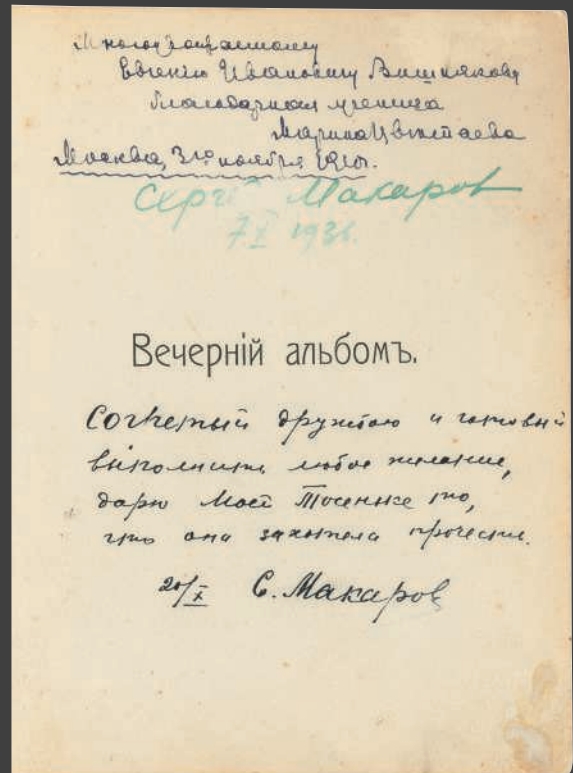 Многоуважаемому
Евгению Ивановичу Вишнякову
благодарная ученица
Марина Цвѣтаева
Москва, 31го ноября 1910г.
Сергѣй Макаров
7 X 1936.
Вечерній альбомъ.
Согретый дружбою и готовый
выполнить любое желание,
дарю Моей Тосеньке то,
что она захотела прочесть.
20/X С. Макаров